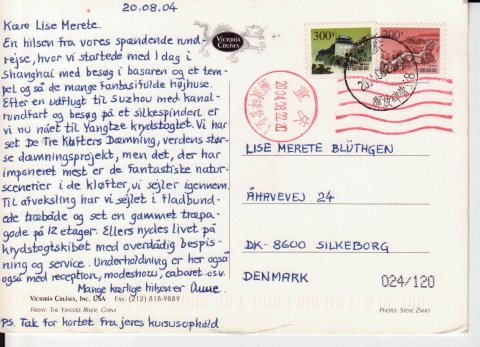 20.08.04
Kære Lise Merete.
En hilsen fra vores spændende rund-
rejse, hvor vi startede med 1 dag i
Shanghai med besøg i basaren og et tem-
pel og så de mange fantasifulde højhuse.
Efter en udflugt til Suzhou med kanal-
rundfart og besøg på et silkespinderi er
vi nu nået til Yangtze krydstogtet. Vi har
set De Tre Kløfters Dæmning, verdens stør-
se dæmningsprojekt, men det, der har
imponeret mest er de fantastiske natur-
scenerier i de kløfter, vi sejler igennem.
Til afveksling har vi sejlet i fladbund-
ede træbåde og set en gammel træpa-
gode på 12 etager. Ellers nydes livet på
krydstogtskibet med overdådig bespis-
ning og service. Underholdning er her også
også med reception, modeshow, cabaret osv.
Mange kærlige hilsener Anne.
VICTORIA CRUISES, INC. USA FAX: (212) 818-9889
FRONT: THE YANGTZE RIVER, CHINA
PS. Tak for kortet fra jeres kursusophold
VICTORIA
CRUISES
300
200
2004.08.22.
LISE MERETE BLÜTHGEN
ÅHAVEVEJ 24
DK-8600 SILKEBORG
DENMARK
024/120
PHOTO: STEVE ZAHO